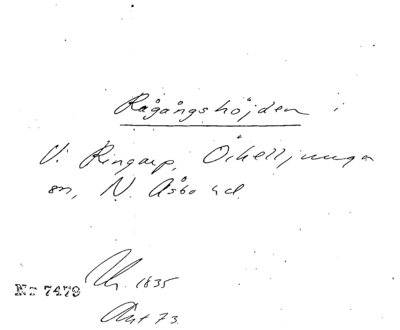 Rågångshöjden i
V. Ringarp, Örkelljunga
sn, N. Åsbo hd.
Nr 7479
Ant 73.